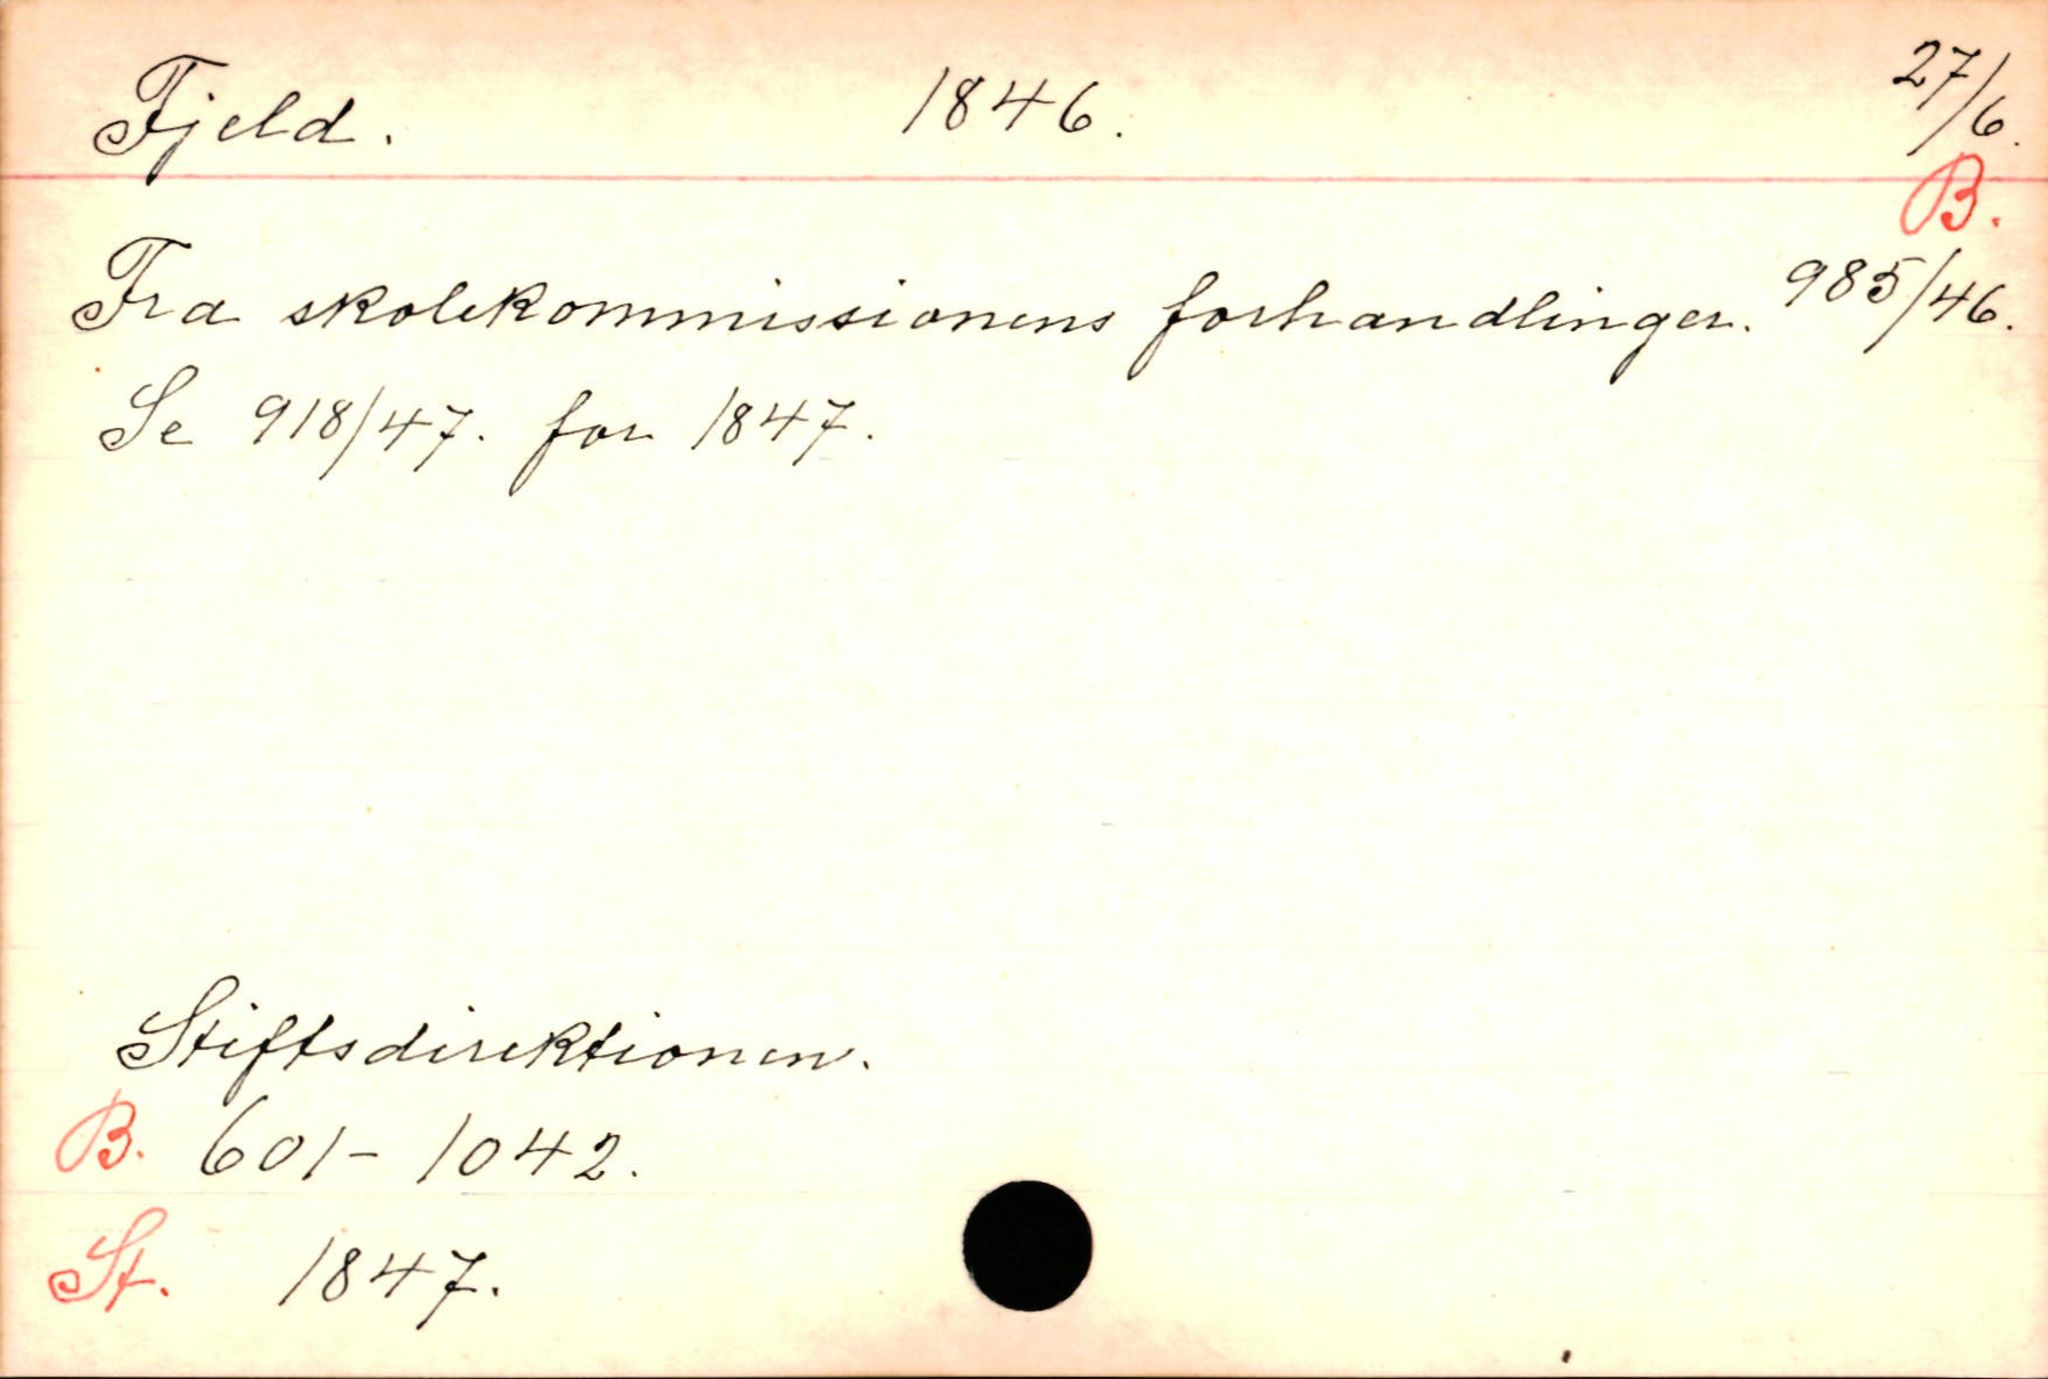 Fjeld. 1846. 27/6.
B.
Fra skolekommissionens forhandlinger. 985/46.
Se 918/47. for 1847.
Stiftsdirektionen.
B. 601-1042.
St. 1847.